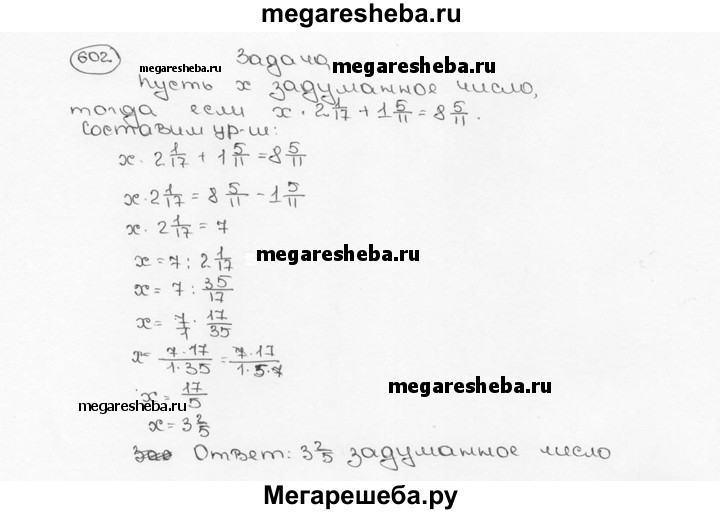 megaresheba.ru
602 Задача
megaresheba.ru megaresheba.ru
Пусть x задуманное число,
тогда если x · 2 1/17 + 1 5/11 = 8 5/11.
Составим ур-ш:
x · 2 1/17 + 1 5/11 = 8 5/11
x · 2 1/17 = 8 5/11 - 1 5/11
x · 2 1/17 = 7
x = 7 : 2 1/17
megaresheba.ru
x = 7 : 35/17
x = 7/1 · 17/35
x = 7·17/1·35 = 7·17/1·5·7
megaresheba.ru
x = 17/5
megaresheba.ru
x = 3 2/5
Ответ: 3 2/5 задуманное число
Мегарешеба.ру